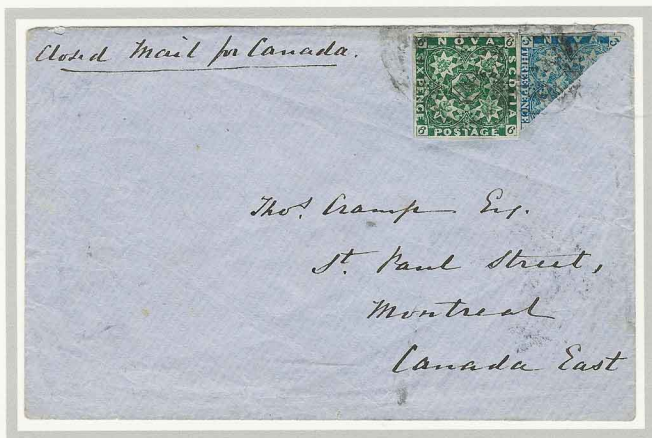 Closed Mail for Canada.
NOVA
SCOTIA
SIX PENCE
POSTAGE
6 6 6 6
NOV
THREE PENCE
Thos. Cramp Esq.
St. Paul Street,
Montreal
Canada East